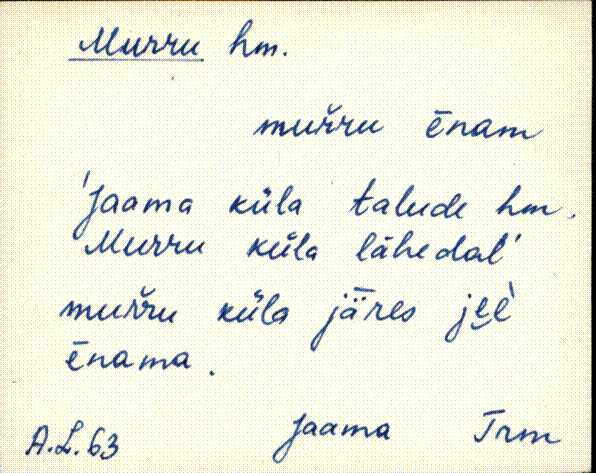 Murru hm.
muřru ēnam
'Jaama küla talude hm.
Murru küla lähedal'
muřru küla jä̈res jeè̮
ēnama.
A.L.63 Jaama Trm